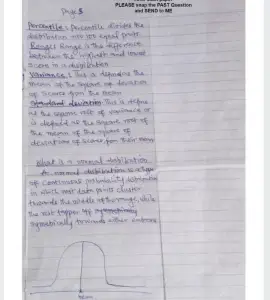 PLEASE snap the PAST Question
and SEND to ME
Percentile : Percentile divides the
distribution into 100 equal parts
Range: Range is the difference
between the highest and lowest
score in a distribution
Variance : This is defined as the
mean of the square of deviation
of scores from the mean
Standard deviation: This is define
as the square root of variance or
is defined as the square root of
the mean of the square of
deviations of scores from their mean
What is a normal distribution
A normal distribution is a type
of continuous probability distribution
in which most data points cluster
towards the middle of the range, while
the rest taper off symmetrically
symmetrically towards either extreme
mean